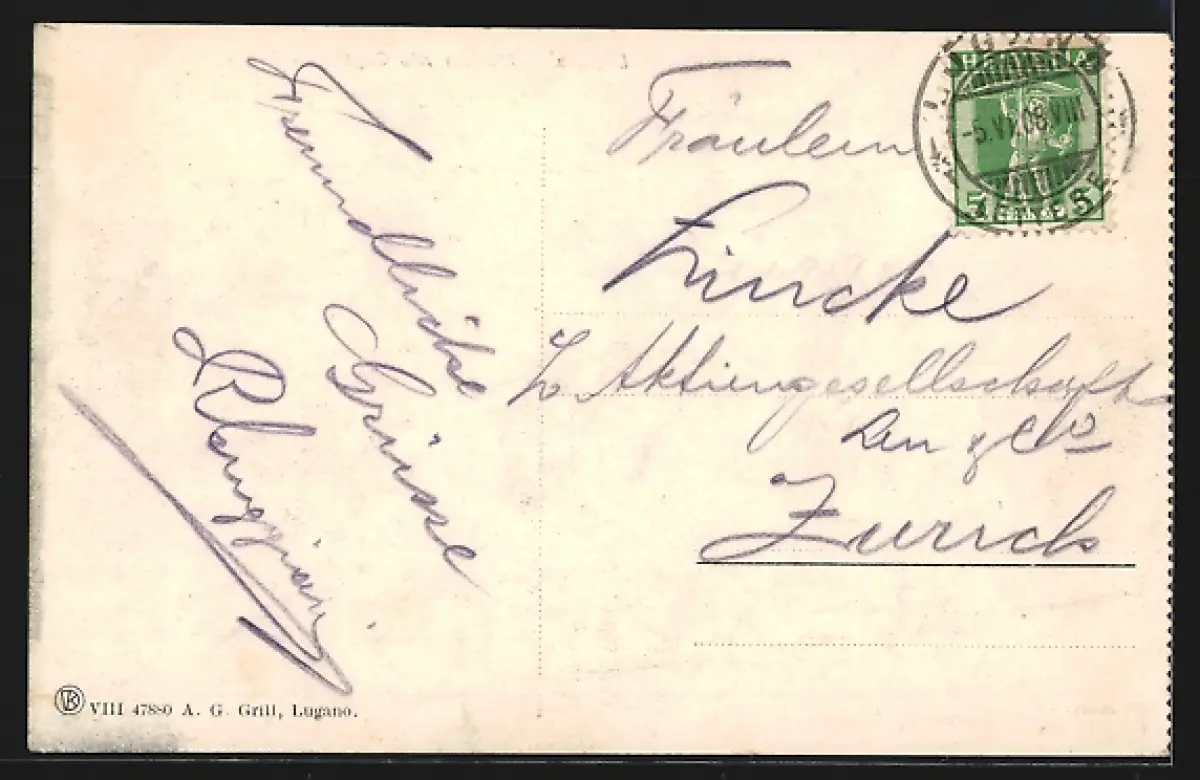 Freundliche
Grüsse
Fräulein
Lincke
Aktiengesellschaft
Leu & Cº
Zürich
HELVETIA
5 5
-5.VI.08.VIII
LETTERE
VIII 47880 A. G. Grill, Lugano.